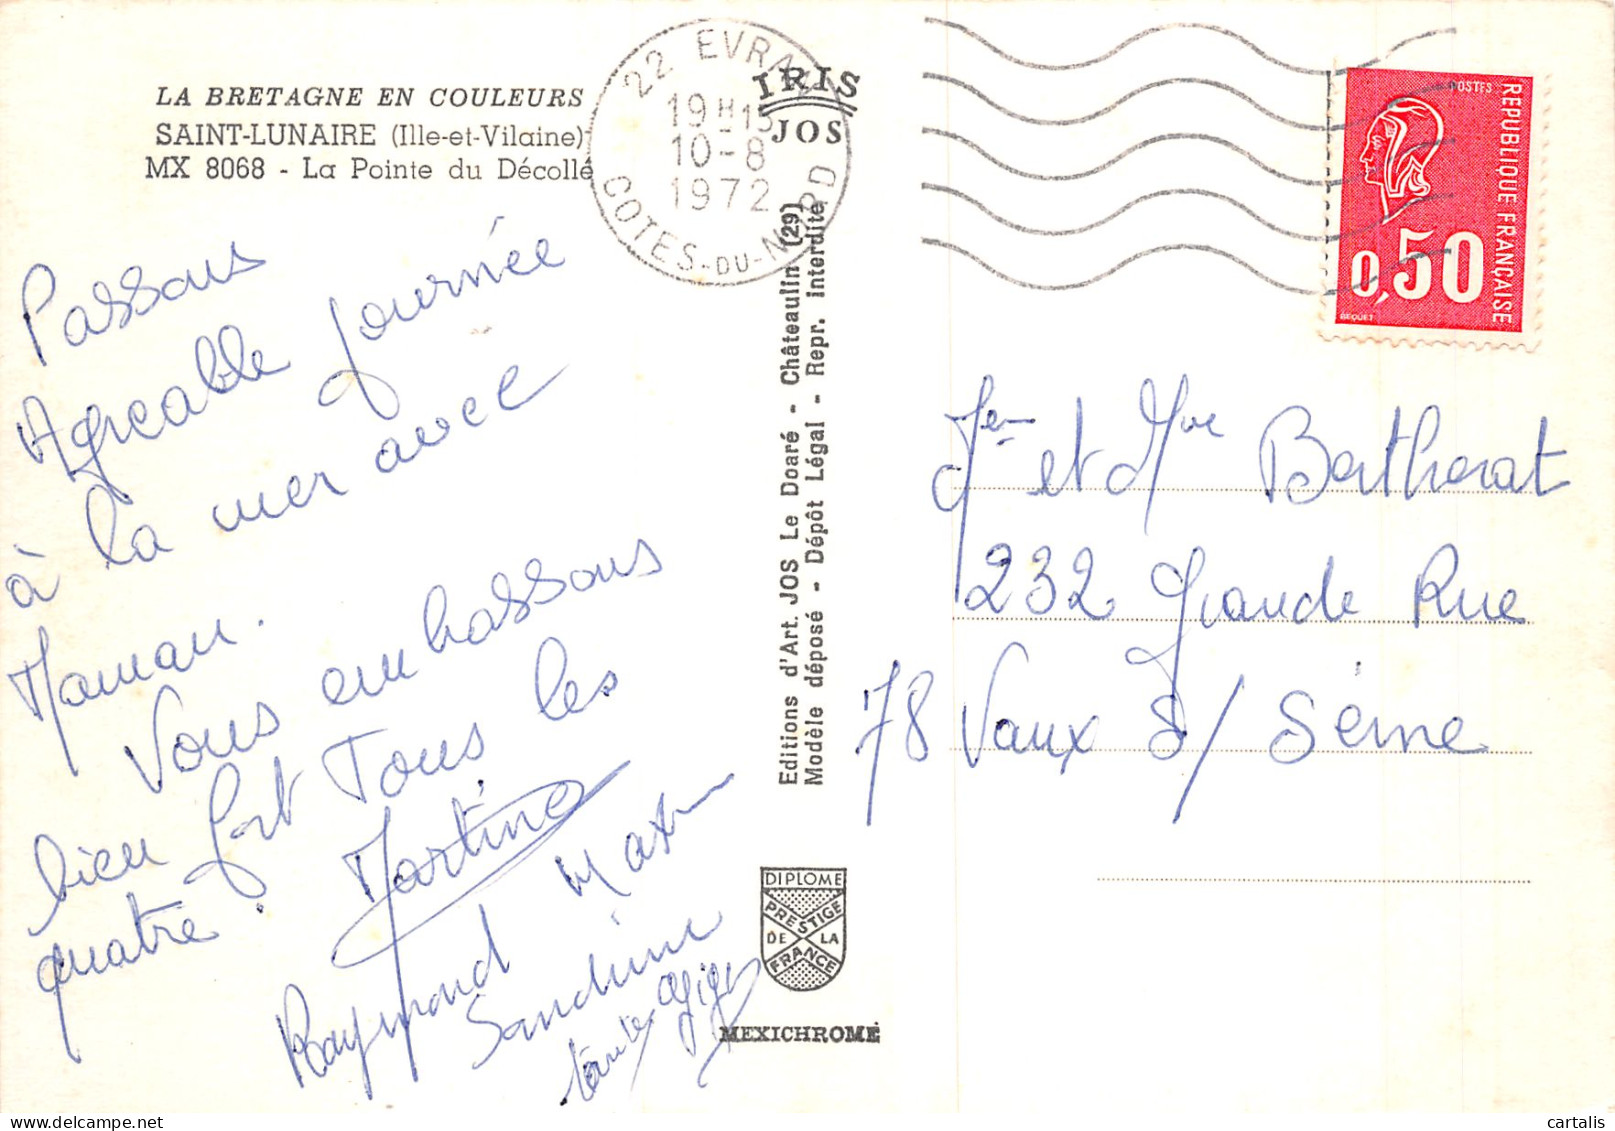 LA BRETAGNE EN COULEURS
SAINT-LUNAIRE (Ille-et-Vilaine)
MX 8068 - La Pointe du Décollé
22 EVRAN
19 H-15
10-8
1972
COTES-DU-NORD
IRIS
JOS
POSTES
REPUBLIQUE FRANÇAISE
0,50
BEQUET
Passons
Agreable journée
à la mer avec
Maman.
Vous embrassons
bien fort Tous les
quatre.
Martine
Raymond Max
Sandrine
tante gigi
Editions d'Art. JOS Le Doaré - Châteaulin (29)
Modèle déposé - Dépôt Légal - Repr. Interdite
DIPLOME
PRESTIGE
DE LA
FRANCE
MEXICHROME
et Mme Bertherat
232 Grande Rue
78 Vaux S/ Séine
cartalis